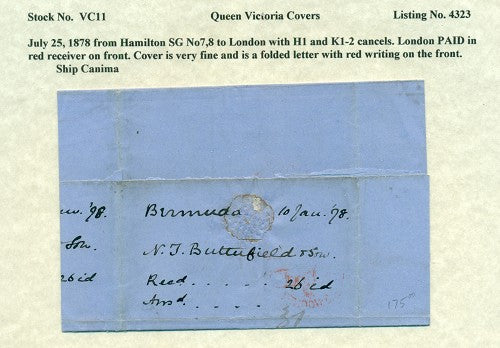 Stock No. VC11 Queen Victoria Covers Listing No. 4323
July 25, 1878 from Hamilton SG No7,8 to London with H1 and K1-2 cancels. London PAID in
red receiver on front. Cover is very fine and is a folded letter with red writing on the front.
Ship Canima
'78. Bermuda 10 Jan. '78.
Son. N. T. Butterfield & Son.
26 id Recd . . . . . 26 id
Ansd. . . . .
175